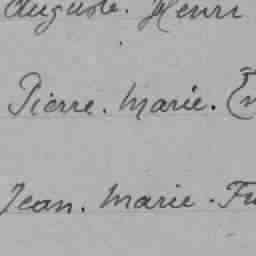 Auguste. Henri
Pierre. Marie.
Jean. Marie.